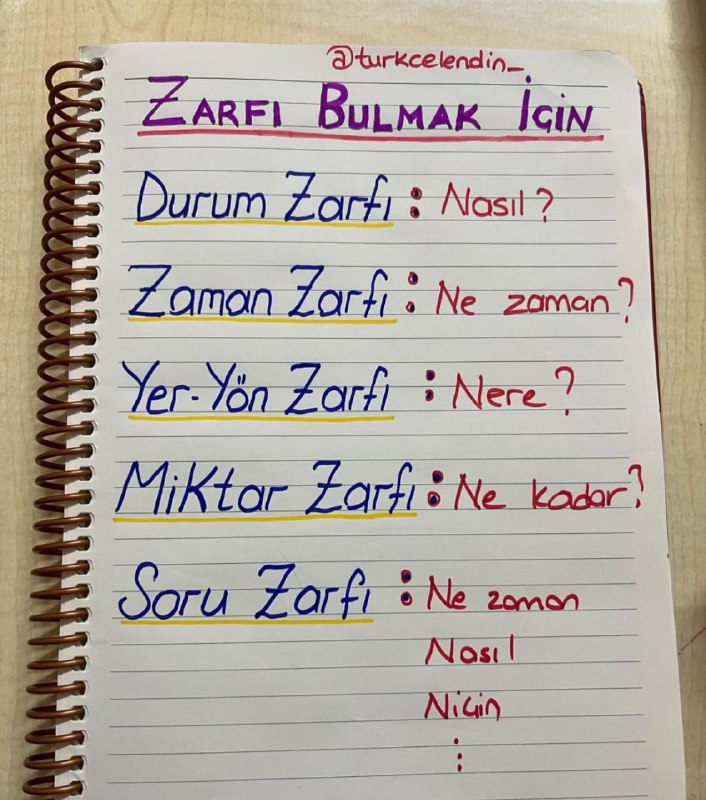 @turkcelendin_
ZARFI BULMAK İÇİN
Durum Zarfı : Nasıl?
Zaman Zarfı : Ne zaman?
Yer-Yön Zarfı : Nere?
Miktar Zarfı : Ne kadar?
Soru Zarfı : Ne zaman
Nasıl
Niçin
⋮